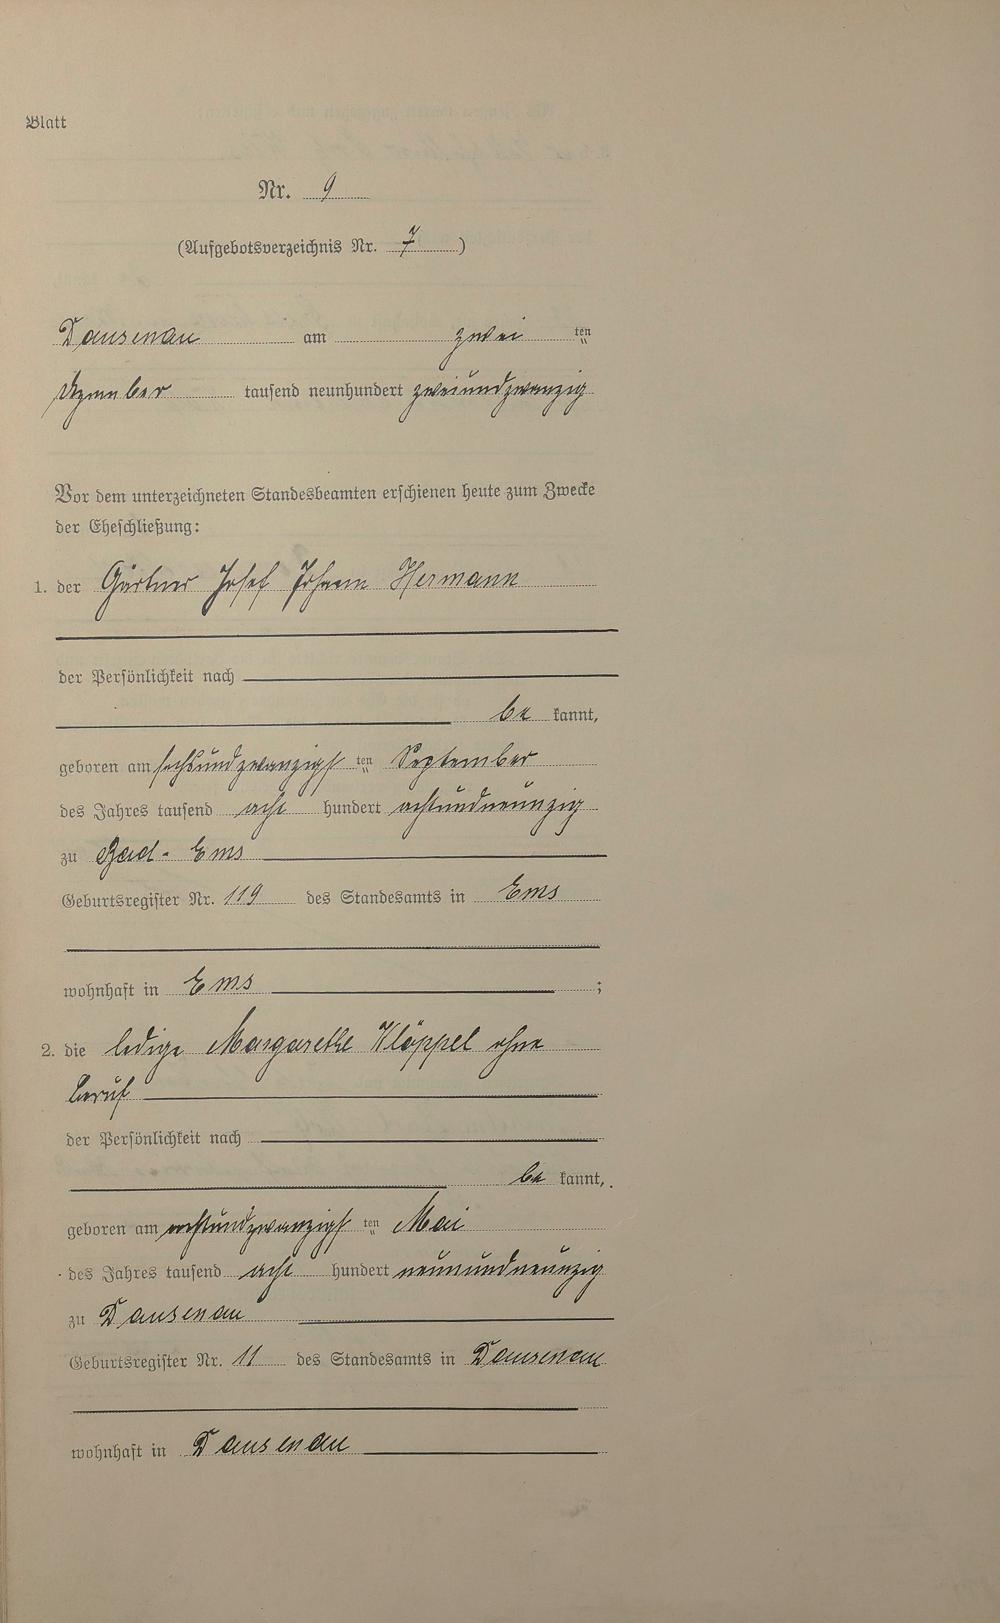 Blatt
Nr. 9
(Aufgebotsverzeichnis Nr. 7)
Dausenau am zwei ten
Dezember tausend neunhundert zweiundzwanzig
Vor dem unterzeichneten Standesbeamten erschienen heute zum Zwecke
der Eheschließung:
1. der Gärtner Josef Johann Hermann
der Persönlichkeit nach
be kannt,
geboren am sechsundzwanzigst ten September
des Jahres tausend acht hundert achtundneunzig
zu Bad-Ems
Geburtsregister Nr. 119 des Standesamts in Ems
wohnhaft in Ems ;
2. die ledige Margarethe Klöppel ohne
Beruf
der Persönlichkeit nach
be kannt,
geboren am achtundzwanzigst ten Mai
des Jahres tausend acht hundert neunundneunzig
zu Dausenau
Geburtsregister Nr. 11 des Standesamts in Dausenau
wohnhaft in Dausenau